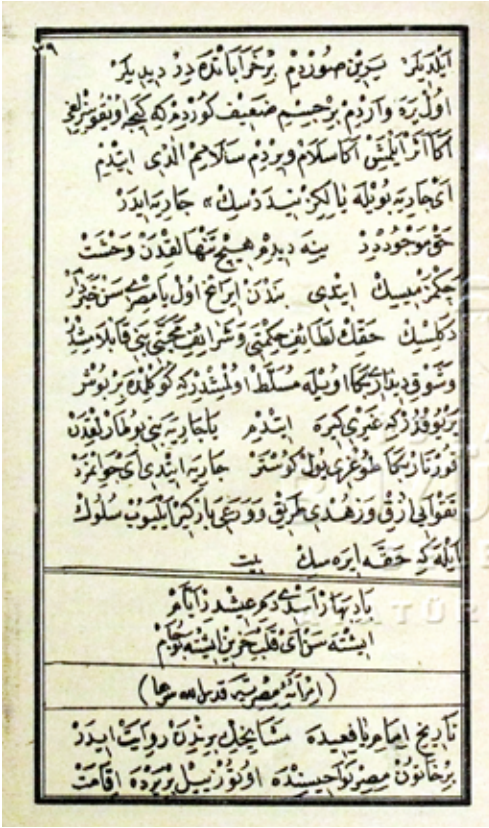 ٣٩
ایلدیلر یرین صوردم بر خراباتده در دیدیلر
اول یره واردم بر جسم ضعیف کوردم که کیجه اویقوسزلغی
اکا اثر ایلمش اکا سلام ویردم سلامم الدی ایتدم
ای جاریه بویله یالکزمیسک جاریه ایدر
حق موجوددر ینه دیدم هیچ تنهالقدن وحشت
چکمزمیسک ایتدی بندن ایراغ اول یا مصری سن خبردار
دکلسک حقک لطائف حکمتی و شرائف محبتی بنی قابلامشدر
و شوق دیداری بکا اویله مسلط اولمشدرکه کوکلمده بر بوش
یر یوقدرکه غیری کیره ایتدم یا جاریه بنی بو
قورتار بکا طوغری یول کوستر جاریه ایتدی ای جوانمرد
تقوایی ازق و زهدی طریق و ورعی بارکیر ایلیوب سلوک
ایله که حقه ایره سک بیت
باد بهار اسدی دم عیشدر ایام
ایشته سن ای قلب حزین ایشته بو جام
(امرأة مصریه قدس الله سرها)
تاریخ امام یافعیده مشایخک برندن روایت ایدر
بر خاتون مصر نواحیسنده اوتوز ییل بر یرده اقامت